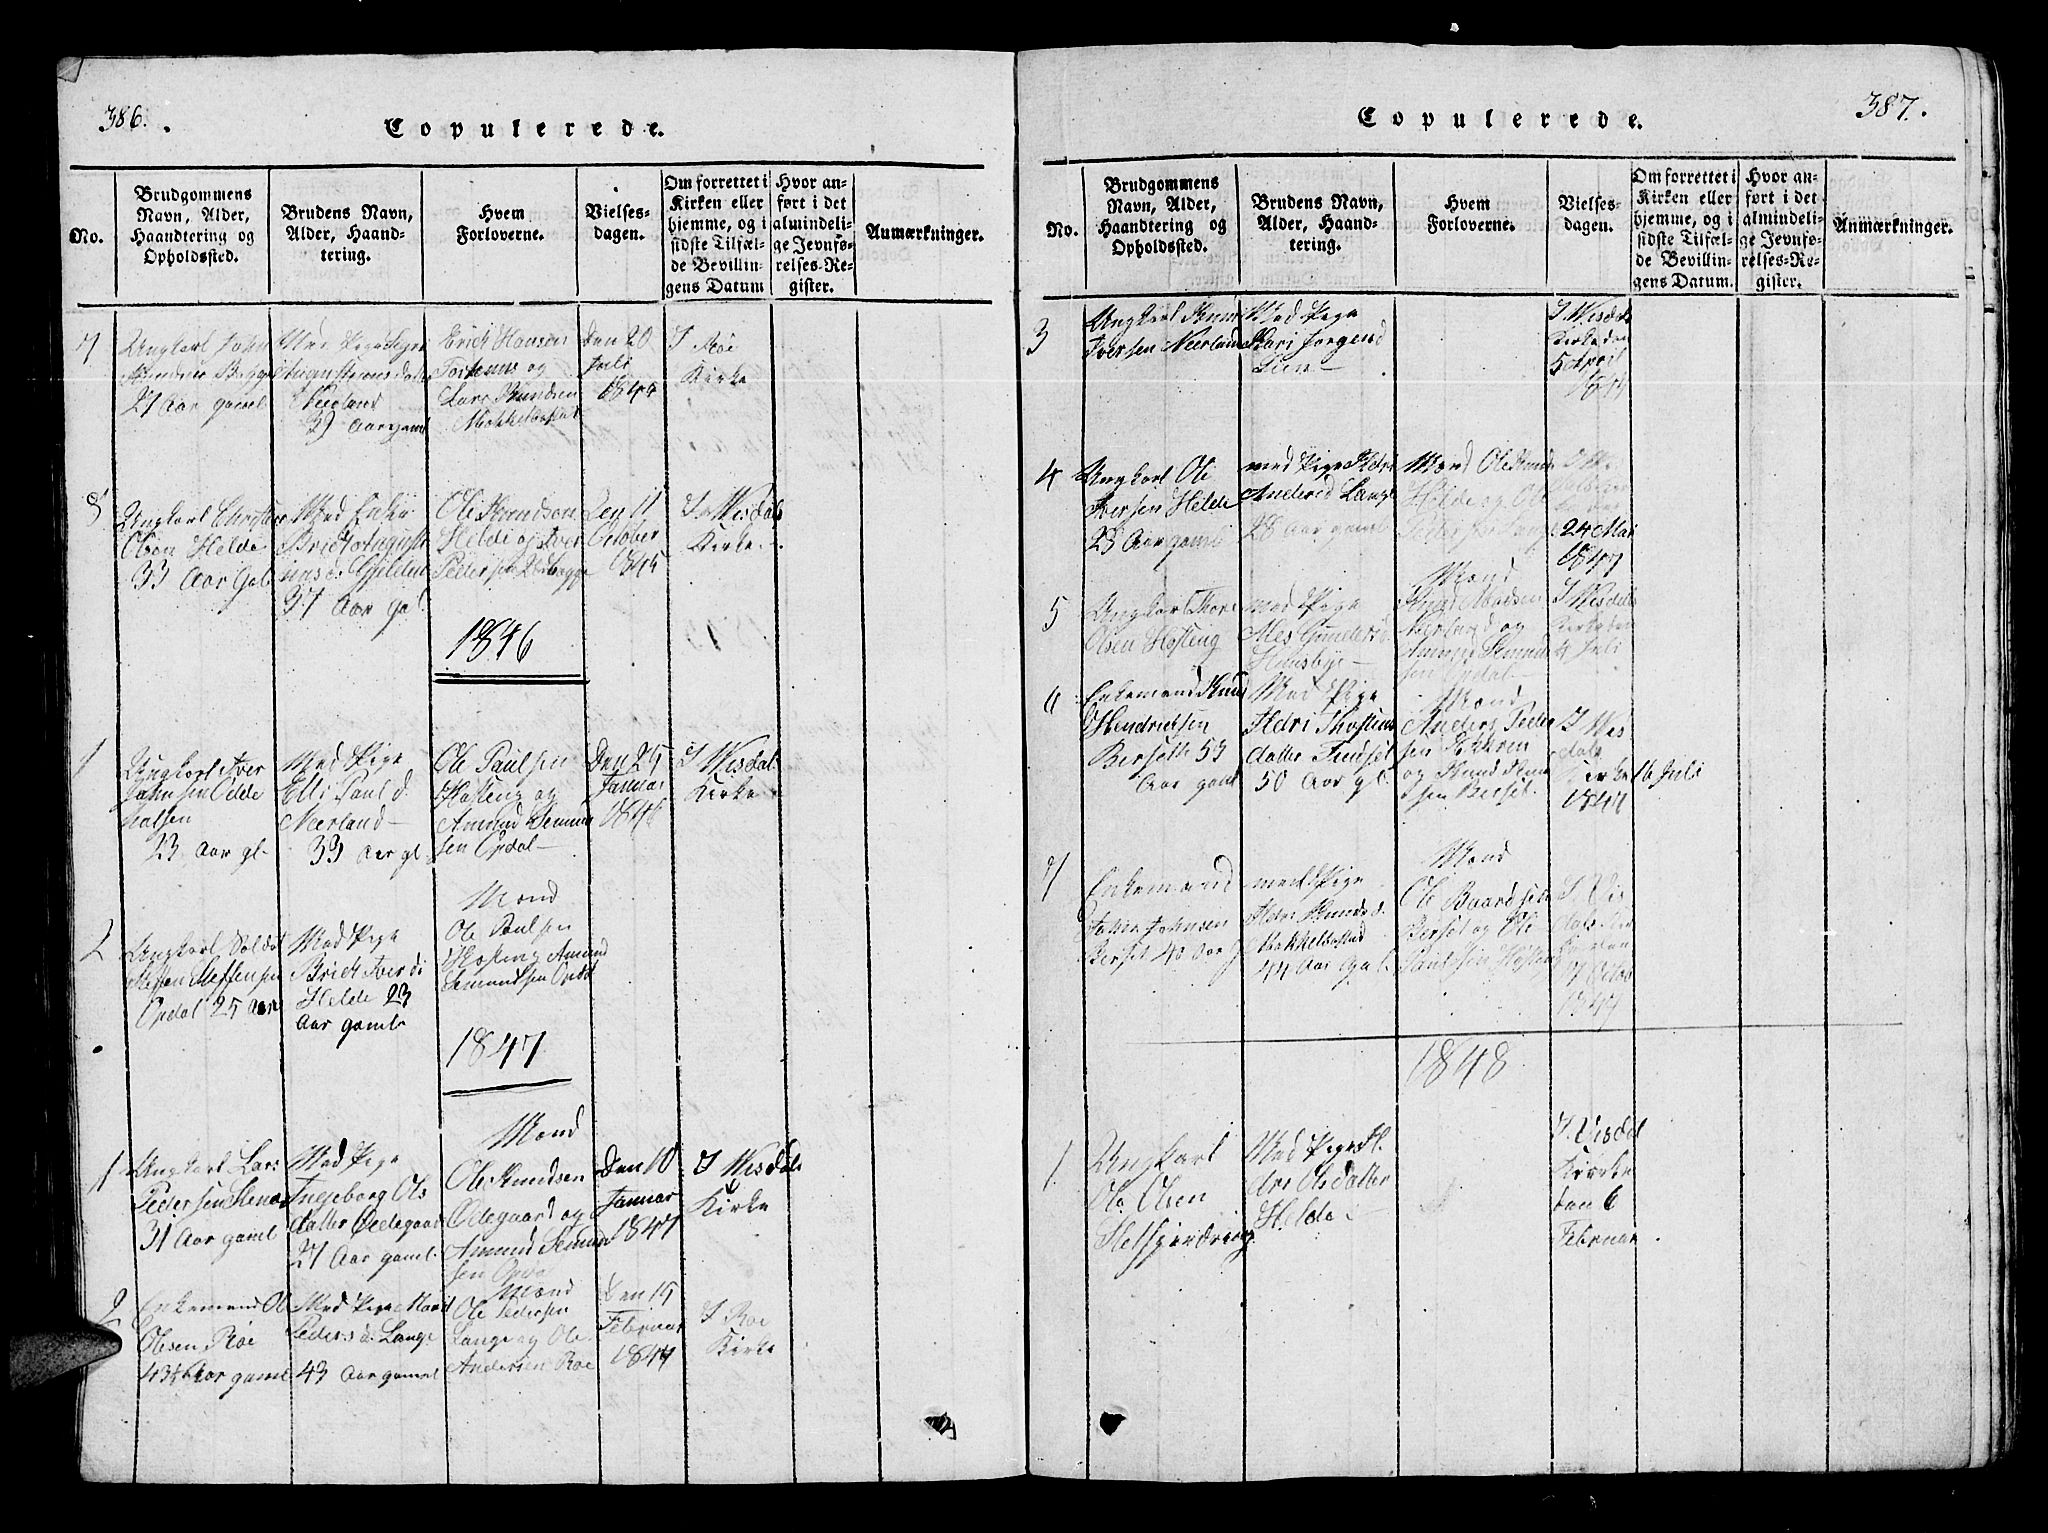 386.
Copulerede.
No.
Brudgommens
Navn, Alder,
Haandtering og
Opholdssted.
Brudens Navn,
Alder, Haand-
tering.
Hvem
Forloverne.
Vielses-
dagen.
Om forrettet i
Kirken eller
hjemme, og i
sidste Tilfæl-
de Bevillin-
gens Datum
Hvor an-
ført i det
almindeli-
ge Jevnfø-
relses-Re-
gister.
Anmærkninger.
7
Ungkarl John
27 Aar gaml
Med Pige
39 Aar gaml
Erich Hansen
og
Lars Knudsen
Mokkelbostad
Den 20
Juli
1845
I Roe
Kirke
8
Ungkarl Christen
Olsen Helde
33 Aar gal
Med Enke
37 Aar gal
Ole Knudsen
Helde og Iver
Pedersen
Den 11
October
1845
I Wisdals
Kirke
1846
1
Ungkarl Iver
Johnsen
23 Aar gl.
Med Pige
Elli Paul d.
Nerland
39 Aar gl.
Ole Paulsen
Hosteng og
Amund Semund
sen Opdal
Den 25
Januar
1846
I Wisdal
Kirke
2
Ungkarl Soldat
Steffen Steffensen
Opdal 25 Aar
Med Pige
Brith Iversd
Helde 23
Aar gaml
Mond
Ole Paulsen
Hosteng Amund
Semundsen Opdal
1847
1
Ungkarl Lars
Pedersen
31 Aar gaml
Med Pige
Ingeborg Ols
datter Ødegaard
27 Aar gaml.
Mond
Ole Knudsen
Ødegaard og
Amund Semund
sen Opdal
Den 10
Januar
1847
I Wisdals
Kirke
2
Enkemand Ole
Olsen Roe
43½ Aar gaml
Med Pige Marit
Peders d. Lange
43 Aar gaml
Mond
Ole Pedersen
Lange og Ole
Andersen Roe
Den 15
Februar
1847
I Roe
Kirke
387.
Copulerede.
No.
Brudgommens
Navn, Alder,
Haandtering og
Opholdssted.
Brudens Navn,
Alder, Haand-
tering.
Hvem
Forloverne.
Vielses-
dagen.
Om forrettet i
Kirken eller
hjemme, og i
sidste Tilfæl-
de Bevillin-
gens Datum.
Hvor an-
ført i det
almindeli-
ge Jevnfø-
relses-Re-
gister.
Anmærkninger.
3
Ungkarl Knud
Iversen Nerland
Med Pige
Kari Jørgensd
Lien
I Wisdals
Kirke den
5 April
1847
4
Ungkarl Ole
Iversen Helde
28 Aar gaml
med Pige Ildri
Andersd Lange
28 Aar gaml
Mond Ole Knuds
Helde og Ole
Pedersen Lange
24 Mai
1847
5
Ungkarl Thore
Olsen Hosteng
med Pige
Huusbye
Mond
Knud Madsen
Nerland og
Amund Semund
sen Opdal
I Wisdals
Kirke den
4 Juli
6
Enkemand Knud
Hendricksen
Bersetth 53
Aar gaml
Med Pige
Ildri Thostens
datter
50 Aar gl.
Mond
Anders Peder
sen
og Knud Knud
sen Berset
I Wis
dals
Kirke 16 Juli
1847
7
Enkemand
John Johnsen
Berset 40 Aar g
med Pige
Ildri Knudsd.
Mokkelbostad
44 Aar gal.
Mond
Ole Baardsen
Berset og Ole
Paulsen Hosteng
I Vis
dals
1847
1848
1.
Ungkarl
Ole Olsen
Med Pige Il
dri Olsdatter
Helde
I Visdal
Kirke
den 6
Februar